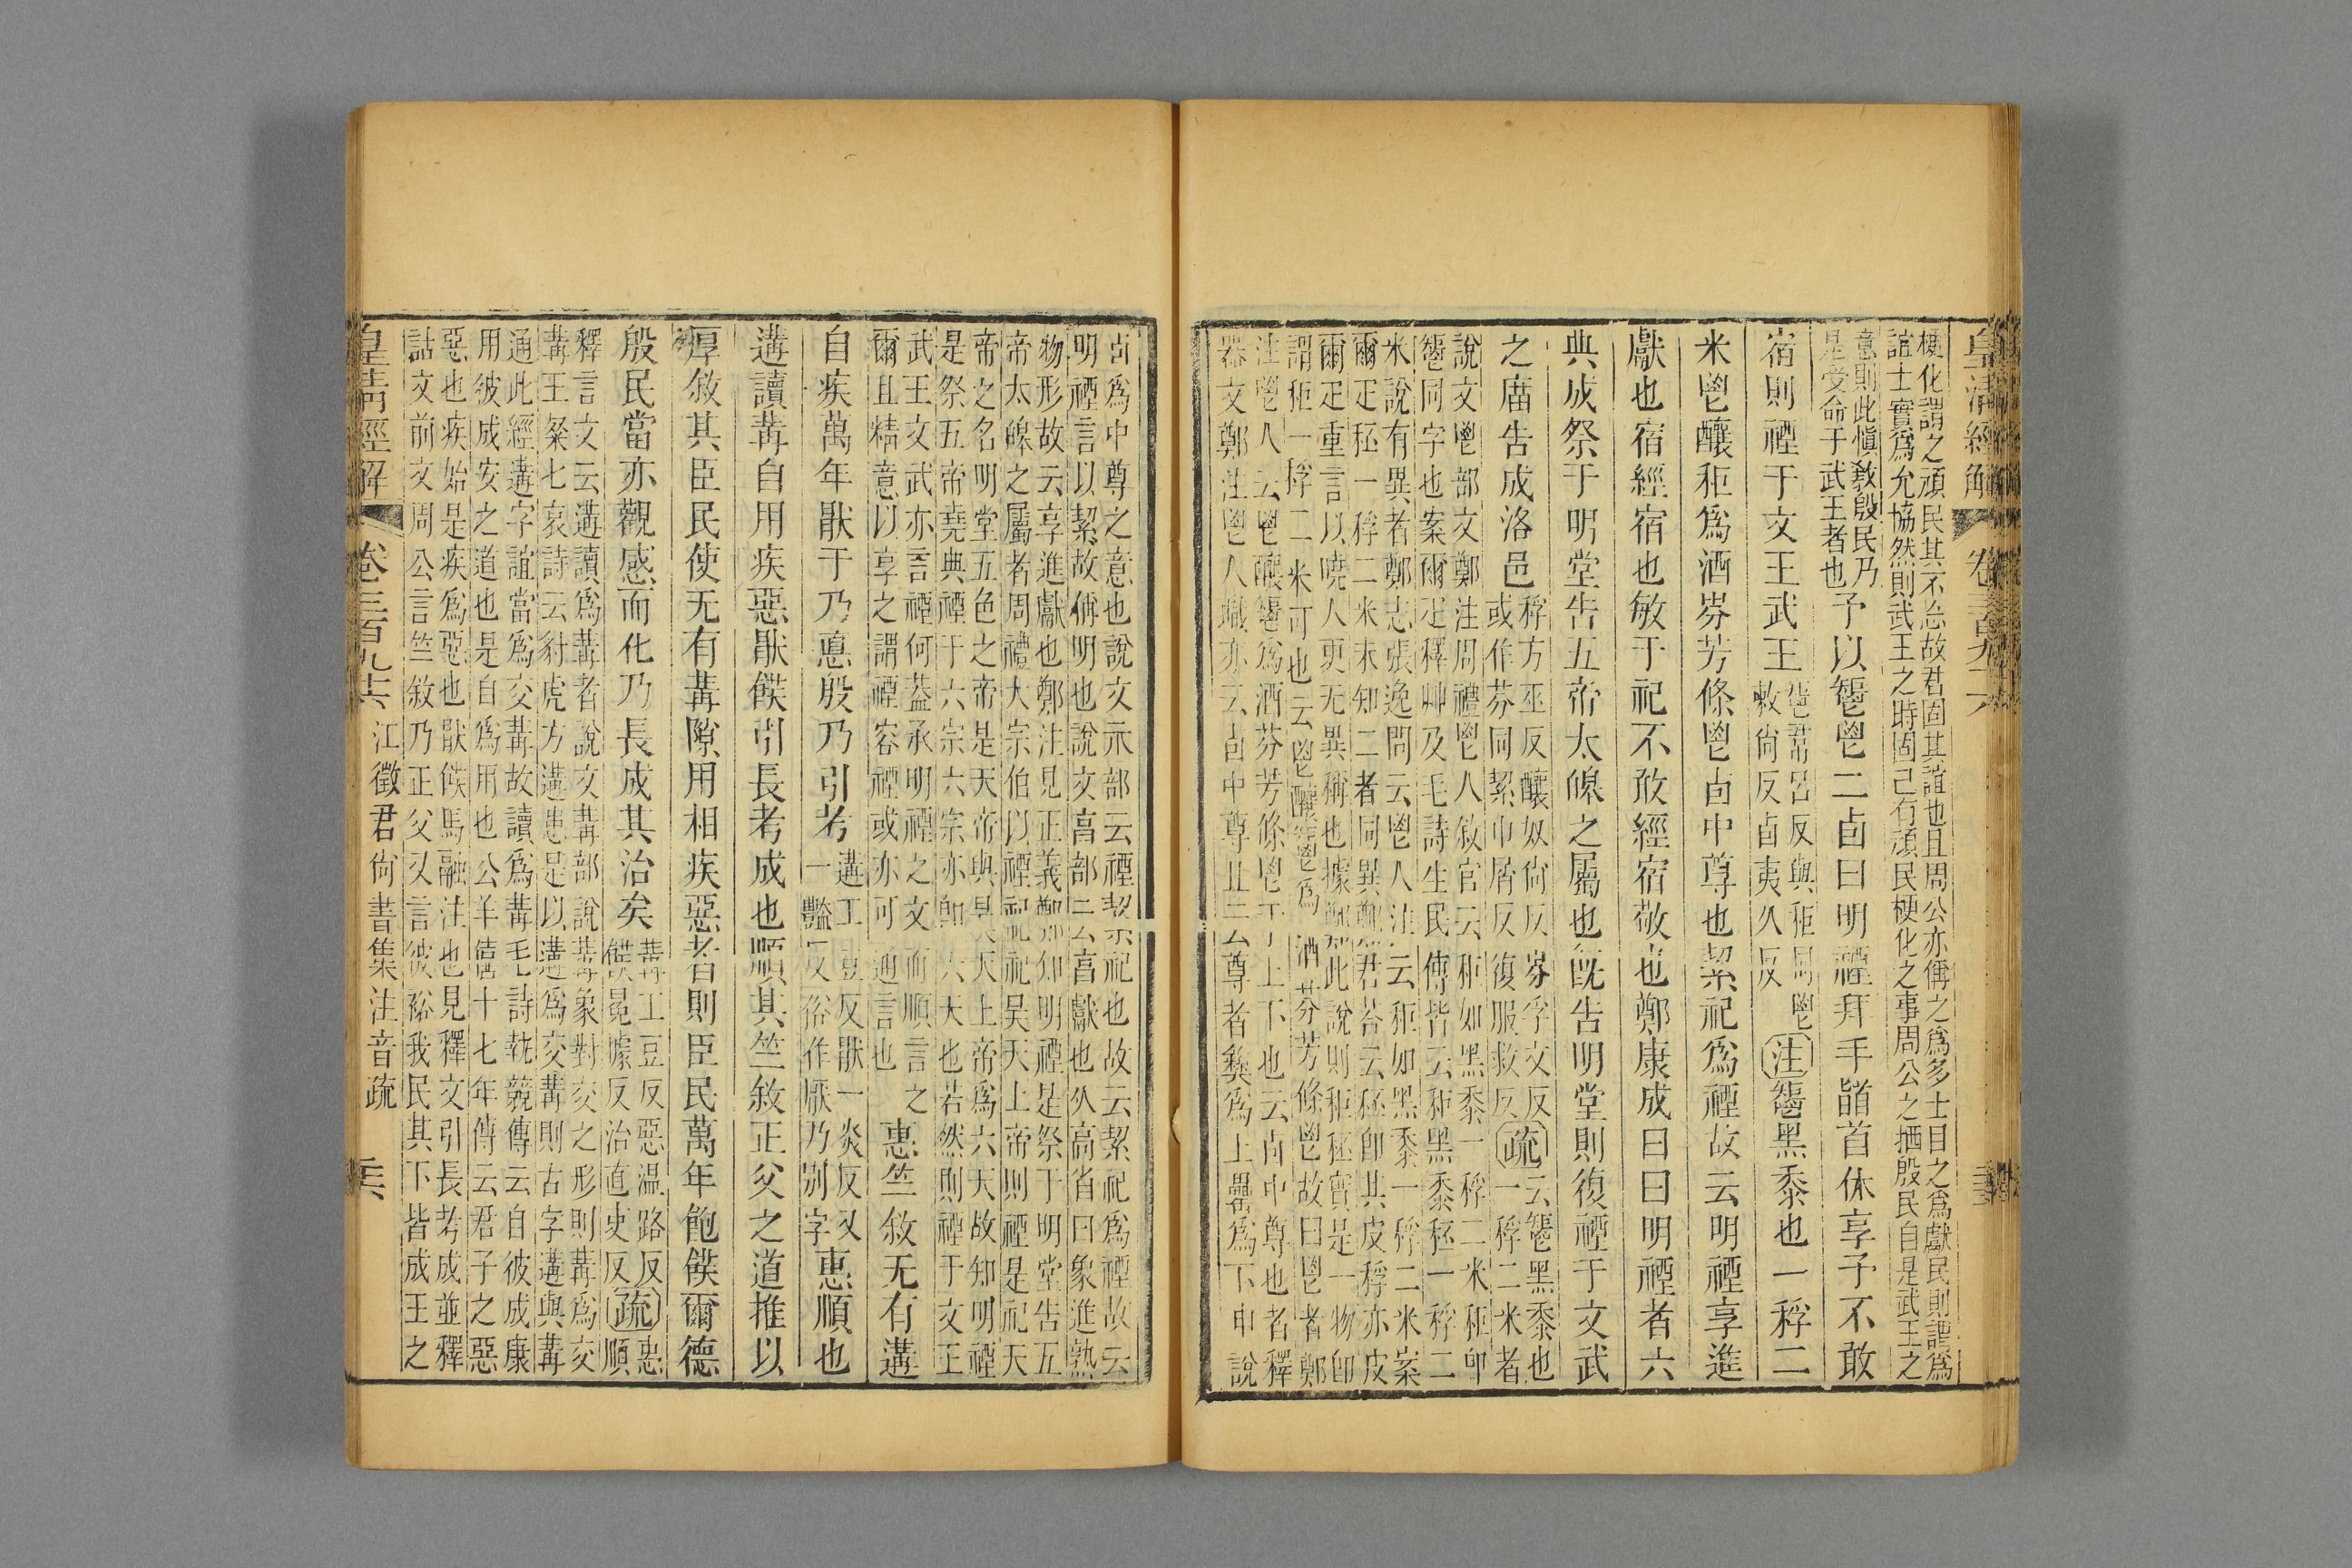 皇清經解 卷三百九十六
梗化謂之頑民其不怂故君固其誼也且周公亦偁之爲多士目之爲獻民則謂爲
誼士實爲允協然則武王之時固己有頑民梗化之事周公之迺殷民自是武王之
意則此愼敎殷民乃
是受命于武王者也
予以𩰪鬯二卣曰明禋拜手䭫首休享予不敢
宿則禋于文王武王
敕尙反卣夷久反
注
黑黍也一稃二
米鬯釀秬爲酒芬芳條鬯卣中尊也絜祀爲禋故云明禋享進
獻也宿經宿也敏于祀不敢經宿敬也鄭康成曰曰明禋者六
典成祭于明堂告五帝太皞之屬也旣告明堂則復禋于文武
之庿告成洛邑
稃方巫反釀奴尙反芬孚文反
或作芬同絜巾屑反復服救反
疏
云𩰪黑黍也
一稃二米者
說文鬯部文鄭注周禮鬯人敘官云秬如黑黍一稃二米秬卽
𩰪同字也案爾疋釋艸及毛詩生民傳皆云秬黑黍秠一稃二
米說有異者鄭志張逸問云鬯人注云秬如黑黍一稃二米案
爾疋秠一稃二米未知二者同異鄭君荅云秠卽其皮稃亦皮
爾疋重言以曉人更无異稱也據鄭此說則秬秠實是一物卽
謂秬一稃二米可也云鬯釀𩰪爲酒芬芳條鬯故曰鬯者鄭
注鬯人云鬯釀𩰪爲酒芬芳條鬯于上下也云卣中尊也者釋
器文鄭注鬯人職亦云卣中尊也云尊者彝爲上罍爲下申說
卣爲中尊之意也說文示部云禋絜祀也故云絜祀爲禋故云
明禋言以絜故偁明也說文亯部云亯獻也从高省曰象進孰
物形故云享進獻也鄭注見正義鄭知明禋是祭于明堂告五
帝太皞之屬者周禮大宗伯以禋祀祀昊天上帝則禋是祀天
帝之名明堂五色之帝是天帝與昊天上帝爲六天故知明禋
是祭五帝堯典禋于六宗六宗亦卽六天也若然則禋于文王
武王文武亦言禋何葢承明禋之文而順言之
爾且精意以享之謂禋容禋或亦可通言也
惠竺敘无有遘
自疾萬年猒于乃悳殷乃引考
遘工豆反猒一炎反又
一豔反俗作厭乃別字
惠順也
遘讀冓自用疾惡猒餕引長考成也順其竺敘正父之道推以
厚敘其臣民使无有冓隙用相疾惡者則臣民萬年飽餕爾德
殷民當亦觀感而化乃長成其治矣
冓工豆反惡溫路反
據反治直吏反
疏
惠
順
釋言文云遘讀爲冓者說文冓部說冓象對交之形則冓爲交
冓王粲七哀詩云豺虎方遘患是以遘爲交冓則古字遘與冓
通此經遘字誼當爲交冓故讀爲冓毛詩執競傳云自彼成康
用彼成安之道也是自爲用也公羊僖十七年傳云君子之惡
惡也疾始是疾爲惡也猒餕馬融注也見釋文引長考成並釋
詁文前文周公言竺敘乃正父又言彼裕我民其下皆成王之
皇清經解 卷三百九十六 江徵君尙書集注音疏